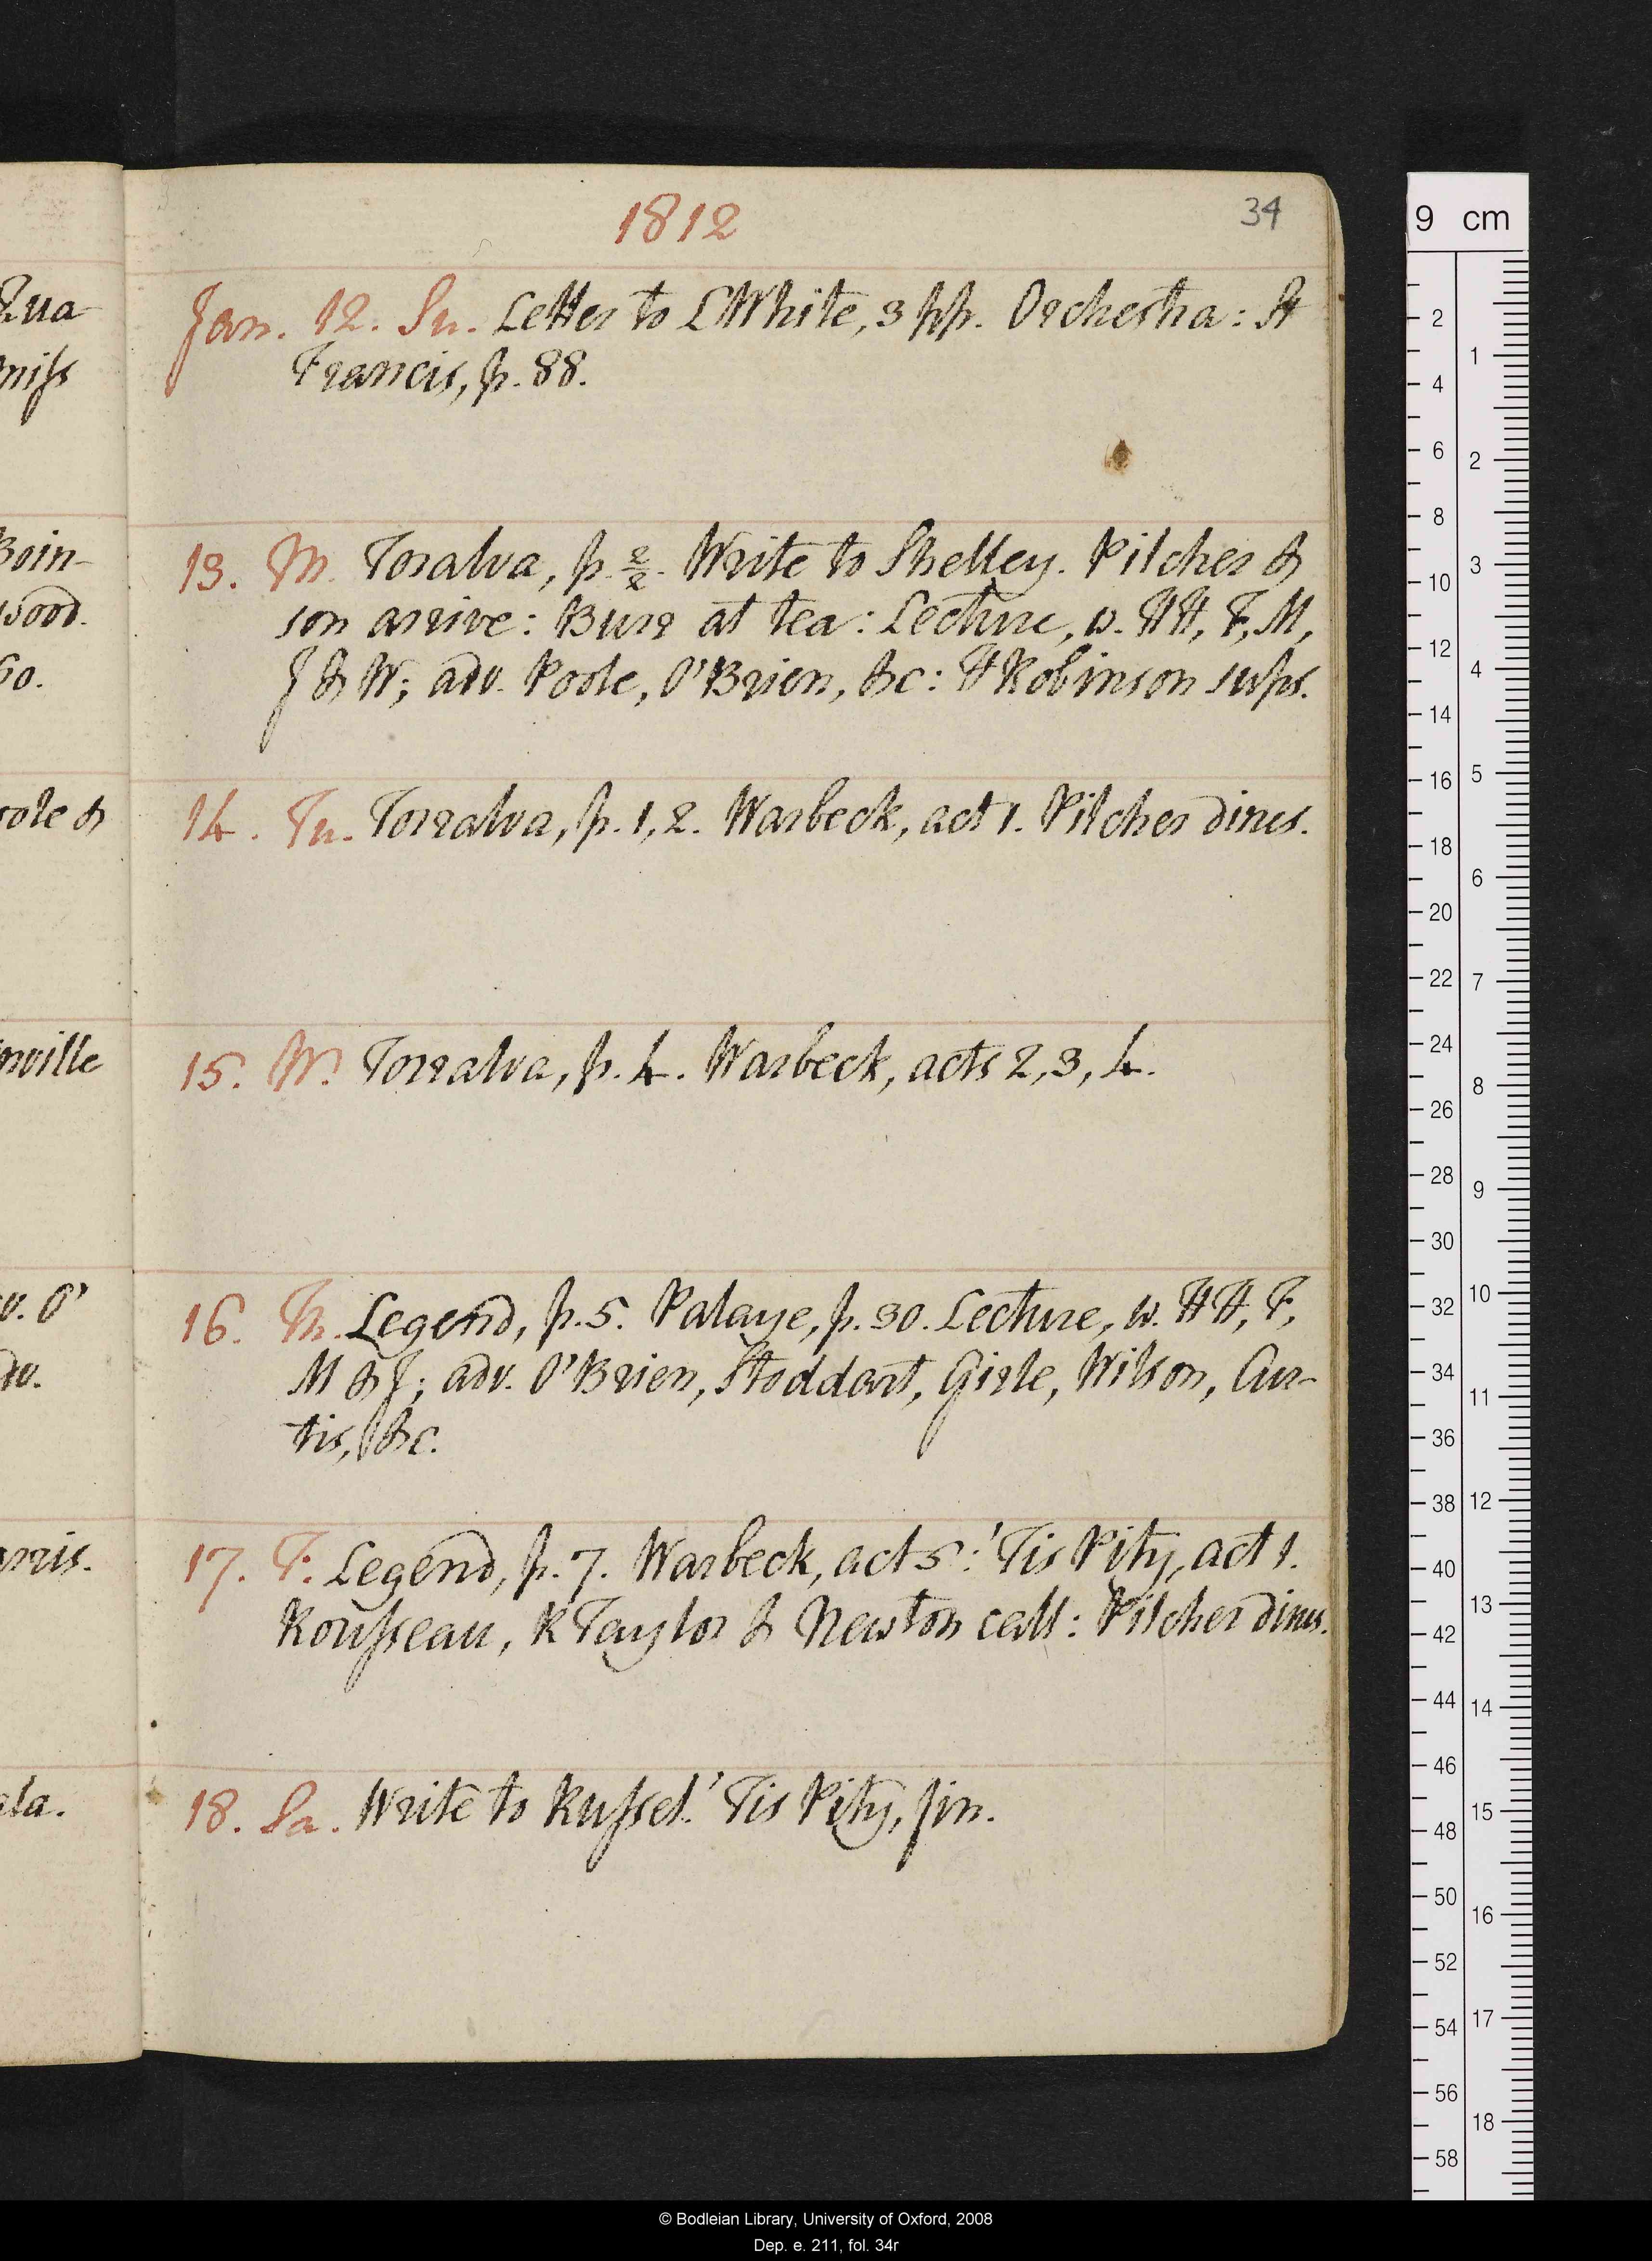 1812
34
Jan. 12. Su. Letter to LWhite, 3 pp. Orchestra: St
Francis, p. 88.
13. M. Toralva, p. 2/2. Write to Shelley. Pilcher &
son arrive: Burr at tea: Lecture, w. HH, F, M,
J & W; adv. Poole, O'Brien, &c: HRobinson sups.
14. Tu. Torralva, p. 1, 2. Warbeck, act 1. Pilcher dines.
15. W. Torralva, p. 4. Warbeck, acts 2, 3, 4.
16. Th. Legend, p. 5. Palaye, p. 30. Lecture, w. HH, F,
M & J; adv. O'Brien, Stoddart, Girle, Wilson, Cur-
tis, &c.
17. F. Legend, p. 7. Warbeck, act 5: 'Tis Pity, act 1.
Rousseau, RTaylor & Newton call: Pilcher dines.
18. Sa. Write to Russel. 'Tis Pity, fin.
Qua-
miss
Boin-
wood.
60.
oole &
nville
v. O'
adv.
arris.
ala.
9 cm
2
4
6
8
10
12
14
16
18
20
22
24
26
28
30
32
34
36
38
40
42
44
46
48
50
52
54
56
58
1
2
3
4
5
6
7
8
9
10
11
12
13
14
15
16
17
18
© Bodleian Library, University of Oxford, 2008
Dep. e. 211, fol. 34r